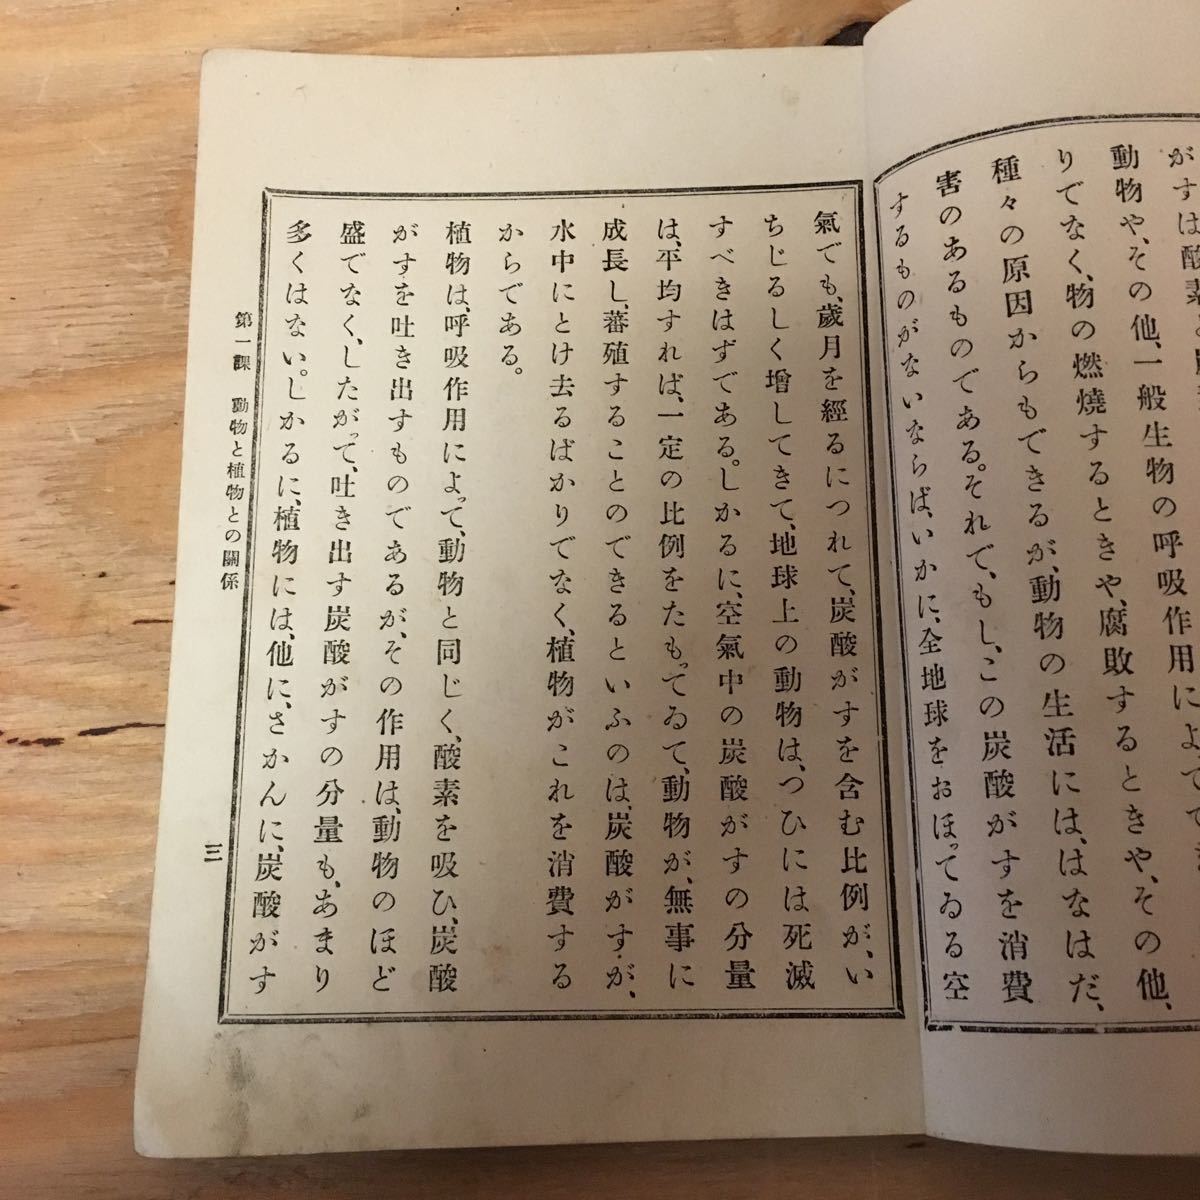 がすは酸素と
動物や、その他、一般生物の呼吸作用によつて
りでなく、物の燃燒するときや、腐敗するときや、その他、
種々の原因からもできるが、動物の生活には、はなはだ、
害のあるものである。それで、もし、この炭酸がすを消費
するものがないならば、いかに、全地球をおほつてゐる空
氣でも、歲月を經るにつれて、炭酸がすを含む比例が、い
ちじるしく增してきて、地球上の動物は、つひには死滅
すべきはずである。しかるに、空氣中の炭酸がすの分量
は、平均すれば、一定の比例をたもつてゐて、動物が、無事に
成長し、蕃殖することのできるといふのは、炭酸がすが、
水中にとけ去るばかりでなく、植物がこれを消費する
からである。
植物は、呼吸作用によつて、動物と同じく、酸素を吸ひ、炭酸
がすを吐き出すものであるが、その作用は、動物のほど
盛でなく、したがつて、吐き出す炭酸がすの分量も、あまり
多くはない。しかるに、植物には、他に、さかんに、炭酸がす
第一課 動物と植物との關係
三